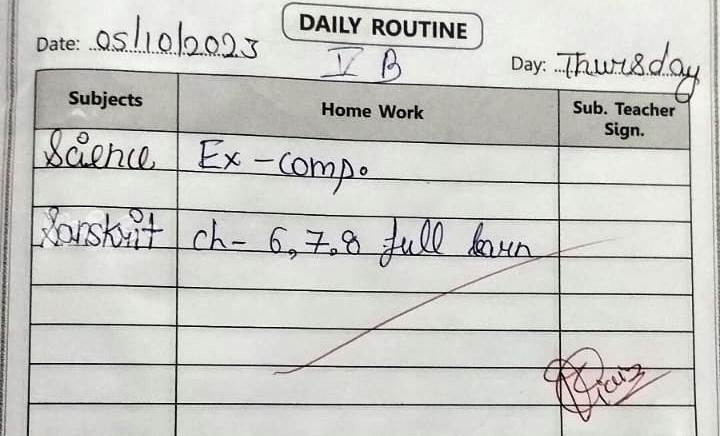 DAILY ROUTINE
Date: 05/10/2023
V B
Day: Thursday
Subjects Home Work Sub. Teacher Sign.
Science Ex-comp.
Sanskrit ch- 6,7,8 full learn